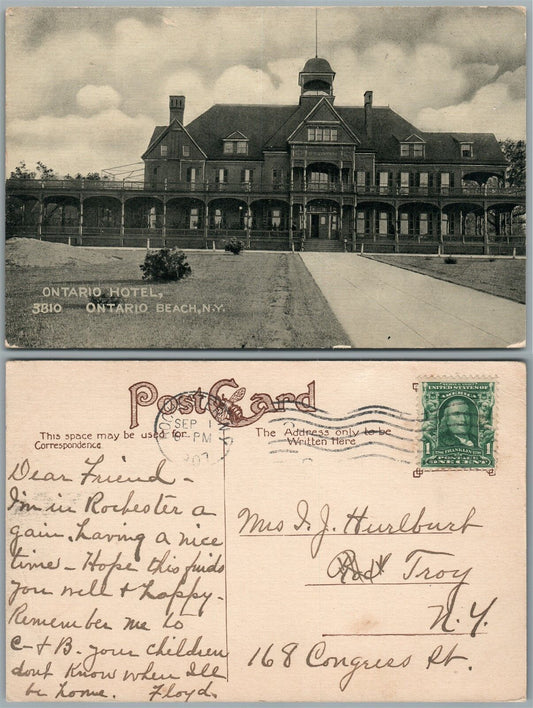 ONTARIO HOTEL,
3810 ONTARIO BEACH, N.Y.
Post Card
This space may be used for
Correspondence
The Address only to be
Written Here
SEP 1
PM
UNITED STATES OF
AMERICA
1 1
FRANKLIN
POSTAGE
ONE CENT
Dear Friend -
I'm in Rochester a
gain, having a nice
time - Hope this finds
you well & happy -
Remember me to
C- & B. your children
dont know when I'll
be home. Floyd.
Mrs I. J. Hurlburt
Troy
N.Y.
168 Congress St.